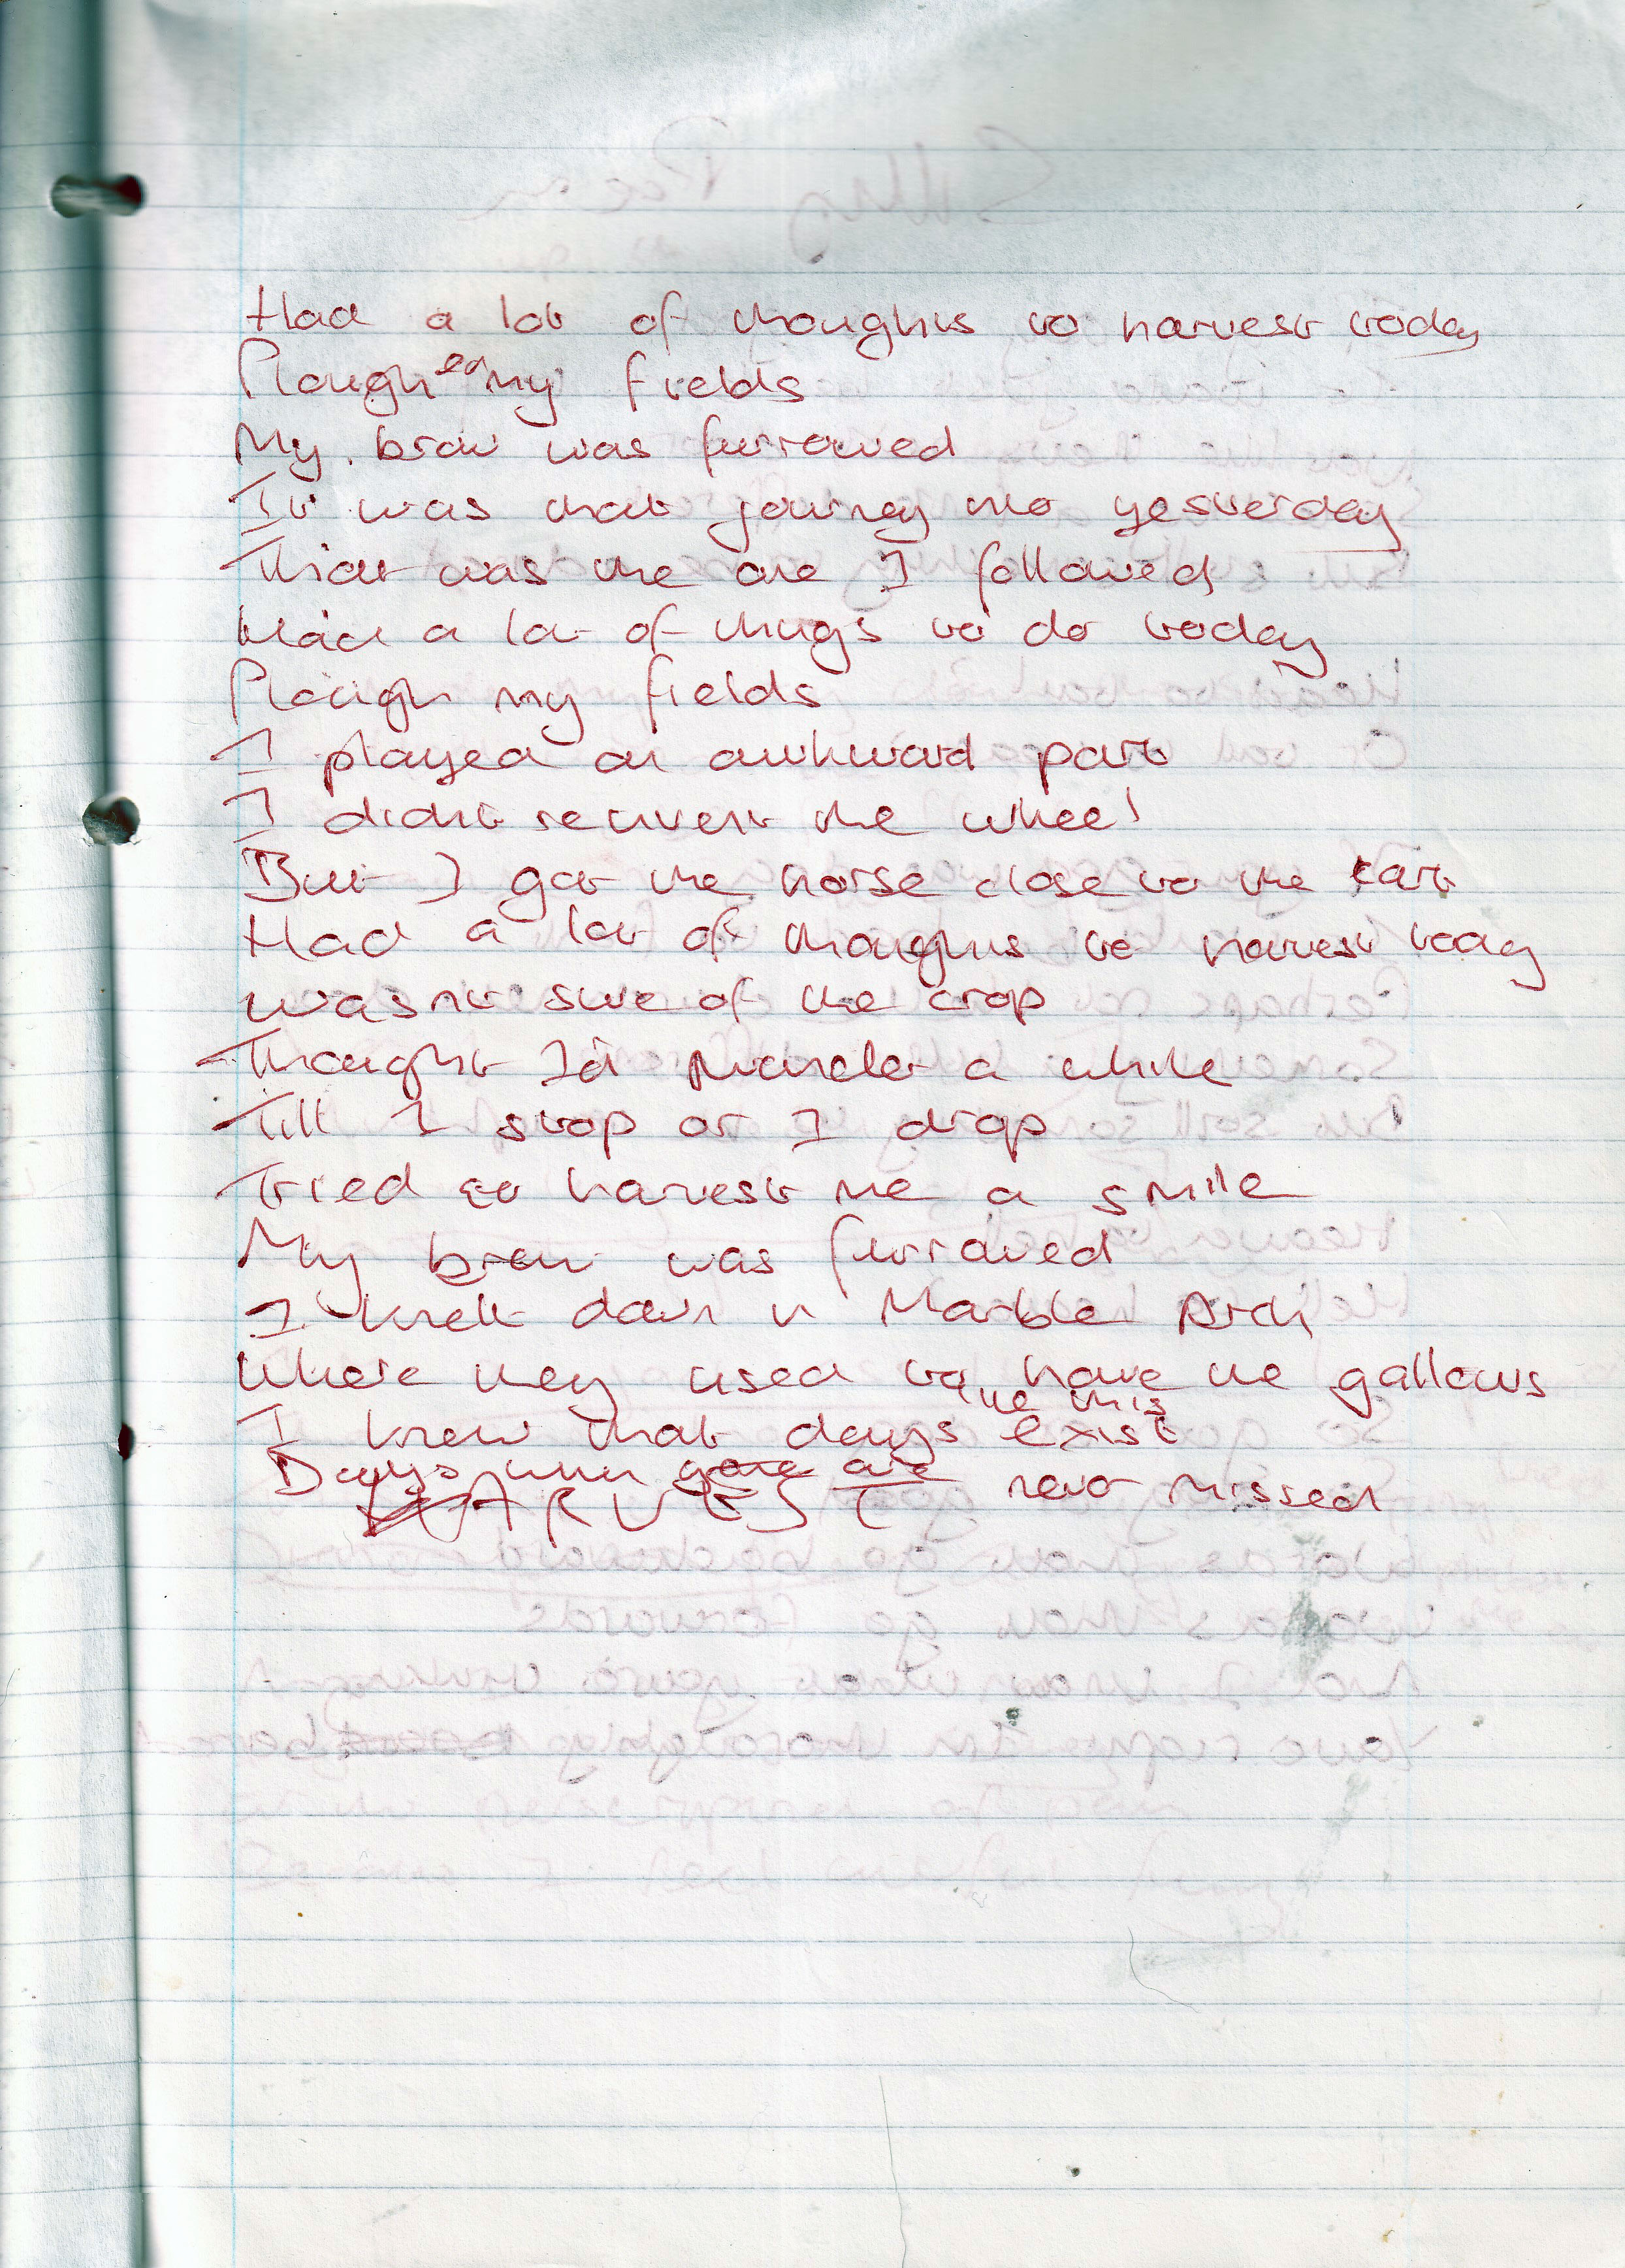 Had a lot of thoughts to harvest today
Ploughed my fields
My brow was furrowed
It was that journey into yesterday
That was the one I followed
Had a lot of things to do today
Plough my fields
I played an awkward part
I didnt reinvent the wheel
But I got the horse close to the cart
Had a lot of thoughts to harvest today
Wasnt sure of the crop
Thought Id a while
Till I stop or I drop
Tried to harvest me a smile
My brow was furrowed
I knelt down in Marble Arch
Where they used to have the gallows
like this
I knew that days exist
Days when gone are never missed
HARVEST